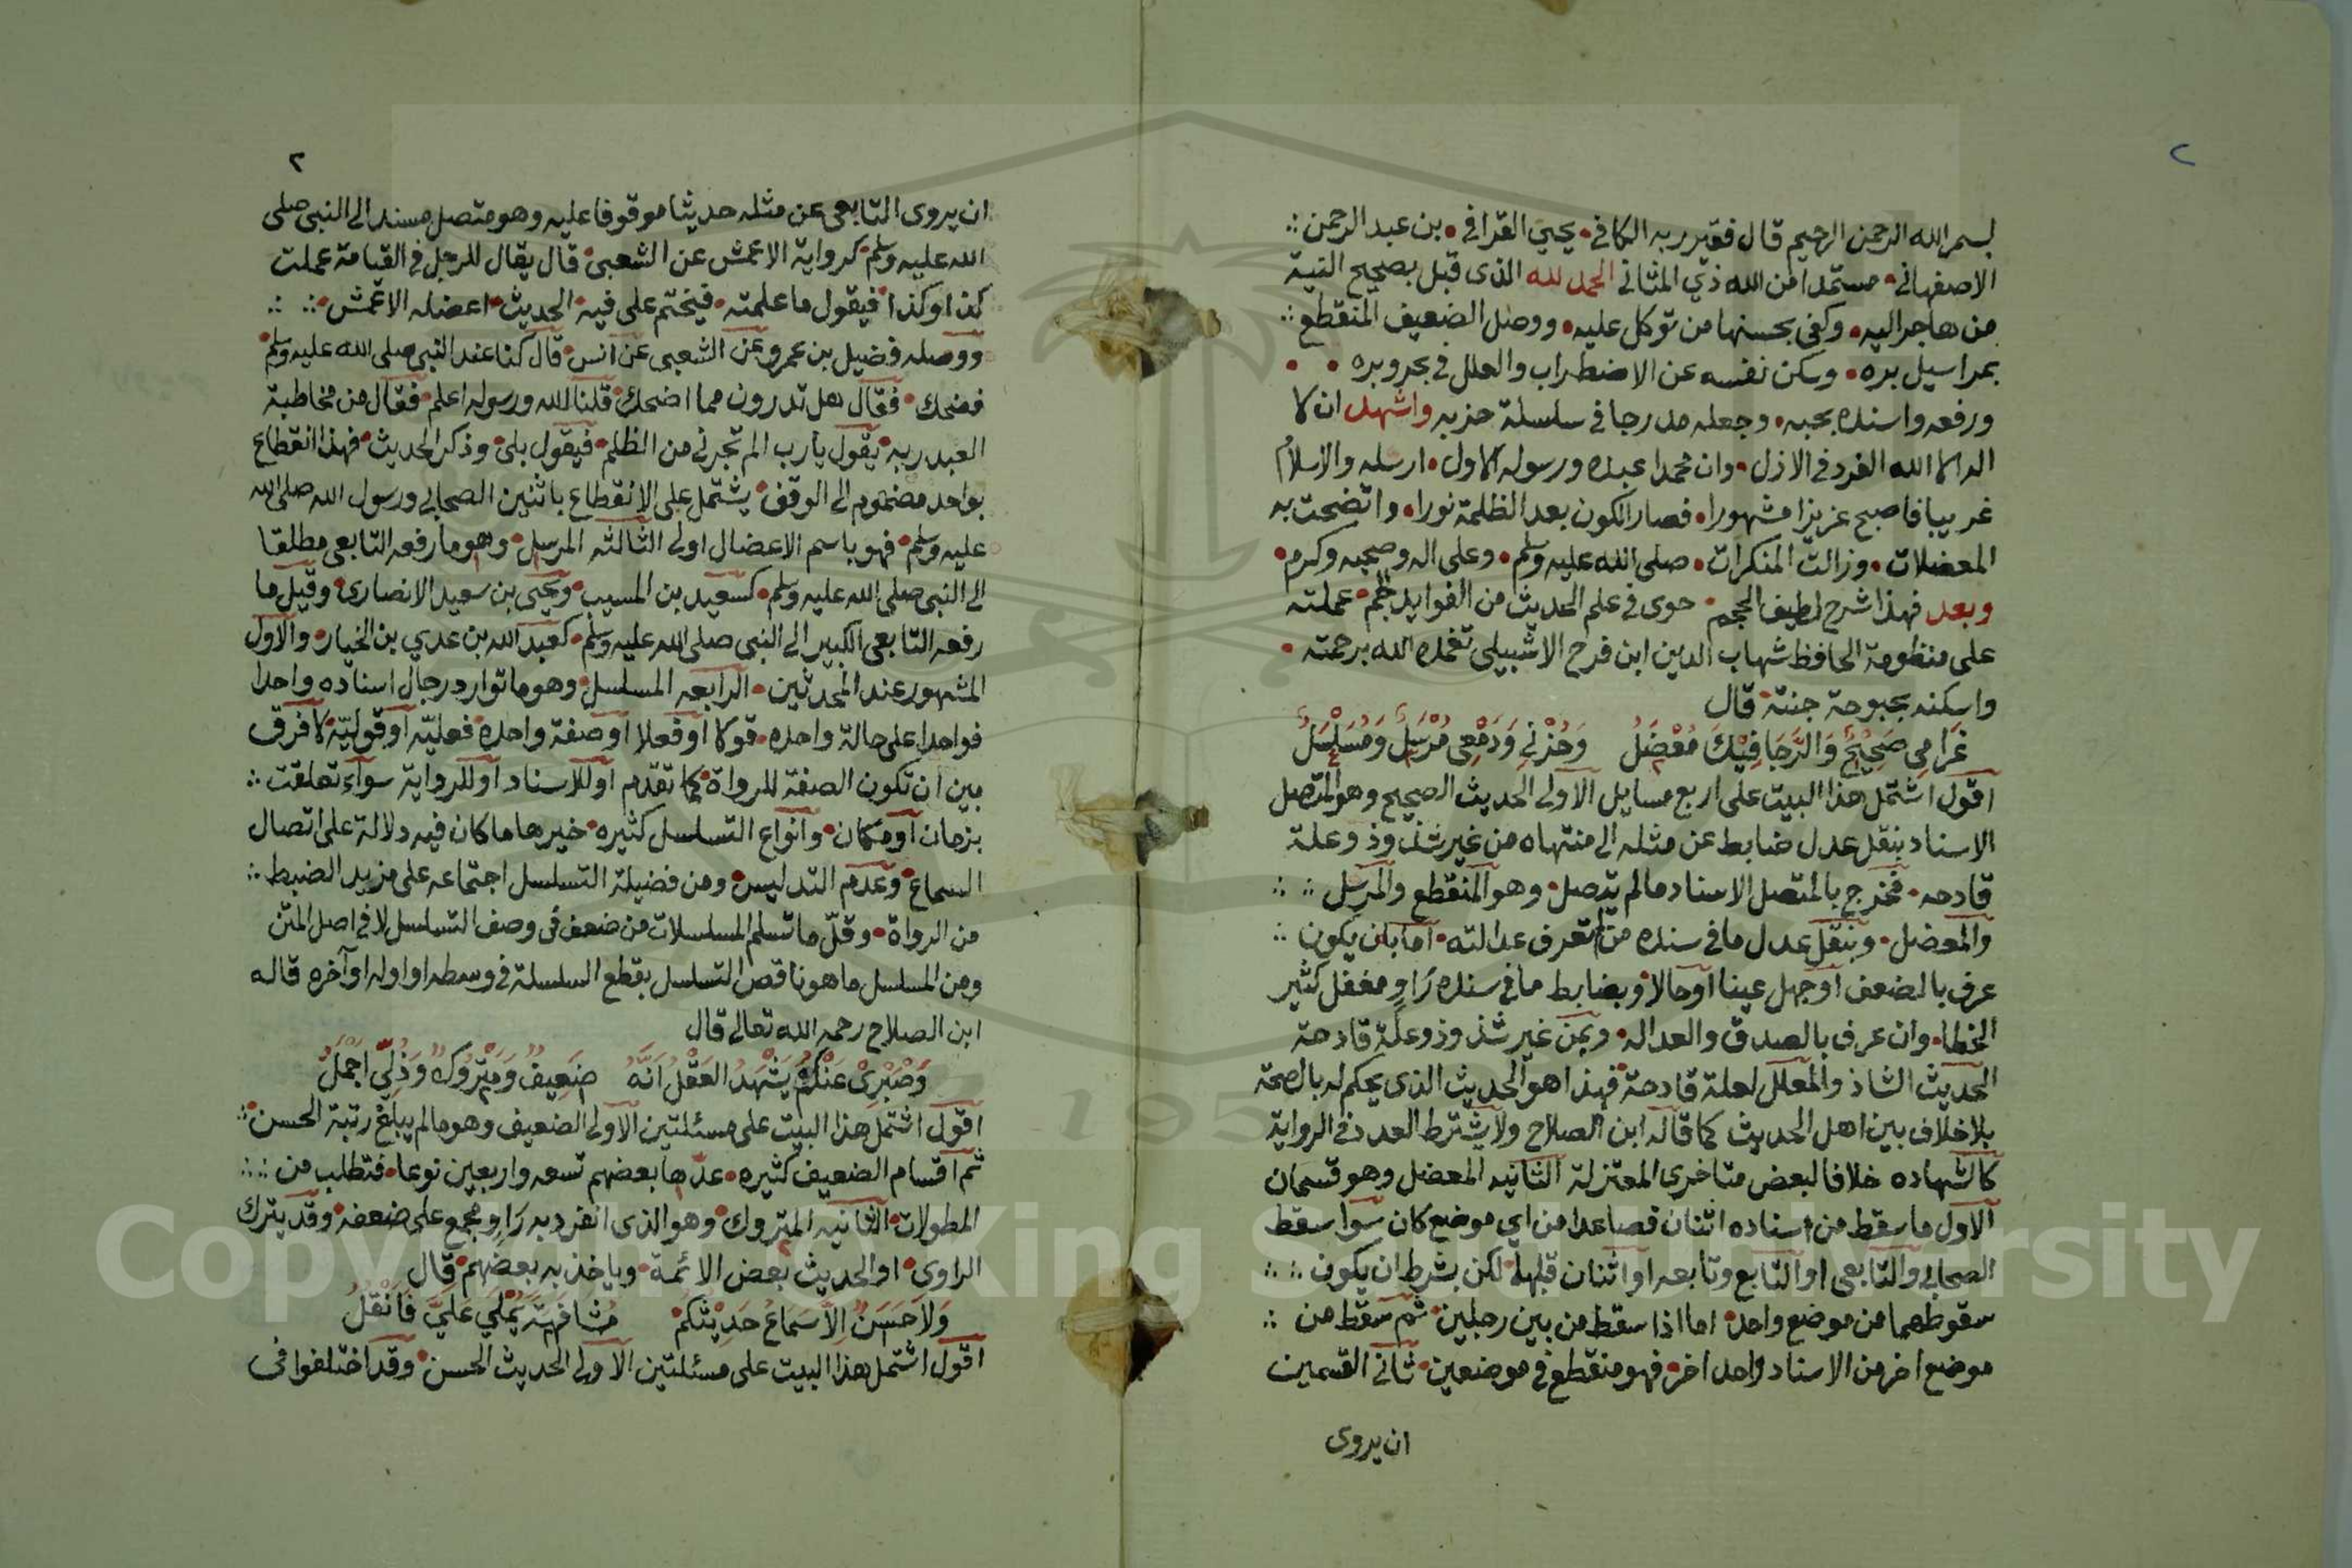 ٢
بسم الله الرحمن الرحيم قال فقير ربه الكافي • يحيى القرافي • بن عبد الرحمن ∴
الاصفهاني • مستمدا من الله ذي المثاني الحمد لله الذى قبل بصحيح النية
من هاجر اليه • وكفى بحسنها من توكل عليه • ووصل الضعيف المنقطع ∴
بمراسيل بره • وسكن نفسه عن الاضطراب والعلل في بحر وبره • •
ورفعه واسنده بحبه • وجعله مدرجا في سلسلة حزبه واشهد ان لا
اله الا الله الفرد في الازل • وان محمدا عبده ورسوله الاول • ارسله والاسلام
غريبا فاصبح عزيزا مشهورا • فصار الكون بعد الظلمة نورا • واتضحت به
المعضلات • وزالت المنكرات • صلى الله عليه وسلم • وعلى اله وصحبه وكرم •
وبعد فهذا شرح لطيف الحجم • حوى في علم الحديث من الفوايد جم • عملته
على منظومة الحافظ شهاب الدين ابن فرح الاشبيلي تغمده الله برحمته •
واسكنه بحبوحة جنتة قال
غَرَامِي صَحِيْحٌ وَالرَّجَا فِيْكَ مُعْضَلُ وَحُزْنِي وَدَمْعِي مُرْسَلٌ وَمُسَلْسَلُ
اقول اشتمل هذا البيت على اربع مسايل الاولى الحديث الصحيح وهو المتصل
الاسناد بنقل عدل ضابط عن مثله الى منتهاه من غير شذوذ وعلة
قادحه • فخرج بالمتصل الاسناد ما لم يتصل • وهو المنقطع والمرسل ∴ ∴
والمعضل • وبنقل عدل ما في سنده من لم تعرف عدالته • اما بان يكون ∴
عرف بالضعف او جهل عينا او حالا • وبضابط ما في سنده رَاوٍ مغفل كثير
الخطا • وان عرف بالصدق والعداله • وبمن غير شذوذ وعلّة قادحة
الحديث الشاذ والمعلل لعلة قادحة • فهذا هو الحديث الذى يحكم له بالصحة
بلا خلاف بين اهل الحديث كما قاله ابن الصلاح ولا يشترط العدد في الرواية
كالشهاده خلافا لبعض متاخرى المعتزلة الثانيه المعضل وهو قسمان
الاول ما سقط من اسناده اثنان فصاعدا من اي موضع كان سوا سقط
الصحابي والتابعي او التابع وتابعه او اثنان قبلها • لكن بشرط ان يكون ∴ ∴
سقوطهما من موضع واحد • اما اذا سقط من بين رجلين • ثم سقط من ∴
موضع اخر من الاسناد واحد اخر • فهو منقطع في موضعين • ثاني القسمين
ان يروى
٢
ان يروى التابعي عن مثله حديثا موقوفا عليه وهو متصل مسند الى النبي صلى
الله عليه وسلم • كرواية الاعمش عن الشعبي • قال يقال للرجل في القيامة عملت
كذا وكذا • فيقول ما علمته • فيختم على فيه • الحديث • اعضله الاعمش • ∴ ∴
ووصله فضيل بن عمرو عن الشعبي عن انس • قال كنا عند النبي صلى الله عليه وسلم •
فضحك • فقال هل تدرون مما اضحك • قلنا الله ورسوله اعلم • فقال من مخاطبة
العبد ربه • يقول يارب الم تجرني من الظلم • فيقول بلى • وذكر الحديث • فهذا انقطاع
بواحد مضموم الى الوقف • يشتمل على الانقطاع باثنين الصحابي ورسول الله صلى الله
عليه وسلم • فهو باسم الاعضال اولى الثالثه المرسل • وهو ما رفعه التابعي مطلقا
الى النبي صلى الله عليه وسلم • كسعيد بن المسيب • ويحيى بن سعيد الانصارى • وقيل ما
رفعه التابعي الكبير الى النبي صلى الله عليه وسلم • كعبد الله بن عدي بن الخيار • والاول
المشهور عند المحدثين • الرابعه المسلسل • وهو ما توارد رجال اسناده واحدا
فواحدا على حالة واحده • قولا او فعلا او صفة واحدة • فعليّه او قوليّة • لا فرق
بين ان تكون الصفة للرواة • كما تقدم او للاسناد او للرواية سواء تعلقت ∴
بزمان او مكان • وانواع التسلسل كثيره • خيرها ما كان فيه دلالة على اتصال
السماع • وعدم التدليس • ومن فضيلة التسلسل اجتماعه على مزيد الضبط ∴
من الرواة • وقلّ ما تسلم المسلسلات من ضعف في وصف التسلسل لا في اصل المتن
ومن المسلسل ما هو ناقص التسلسل بقطع السلسلة في وسطه او اوله او آخره قاله
ابن الصلاح رحمه الله تعالى قال
وَصَبْرِىْ عَنْكُمْ يَشْهَدُ العَقْلُ اَنَّهُ ضَعِيفٌ وَمَتْرُوكٌ وَذُلِّي اَجْمَلُ
اقول اشتمل هذا البيت على مسئلتين الاولى الضعيف وهو ما لم يبلغ رتبة الحسن • ∴
ثم اقسام الضعيف كثيره • عدّها بعضهم تسعه واربعين نوعا • فتطلب من ∴ ∴
المطولات • الثانيه المتروك • وهو الذى انفرد به رَاوٍ مجمع على ضعفه • وقد يترك
الراوى • او الحديث بعض الائمة • وياخذ به بعضهم • قال
وَلاَ حَسَنٌ اِلاَّ سَمَاعُ حَدِيْثِكُمْ مُشَافَهَةً يُمْلِي عَلَيَّ فَاَنْقُلُ
اقول اشتمل هذا البيت على مسئلتين الاولى الحديث الحسن • وقد اختلفوا في
Copyright © King Saud University
1957